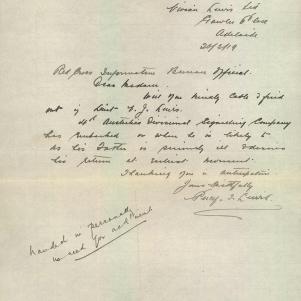 Vivian Lewis Ltd
Gawler Place
Adelaide
20/2/19
Red Cross Information Bureau Official.
Dear Madam.
Will you kindly cable & find
out if Lieut F. J. Lewis.
4th Australian Divisional Signalling Company
has embarked or when he is likely to
as his Father is seriously ill & desires
his return at earliest moment.
Thanking you in anticipation
Yours faithfully
Lewis.
handed in personally
no need for